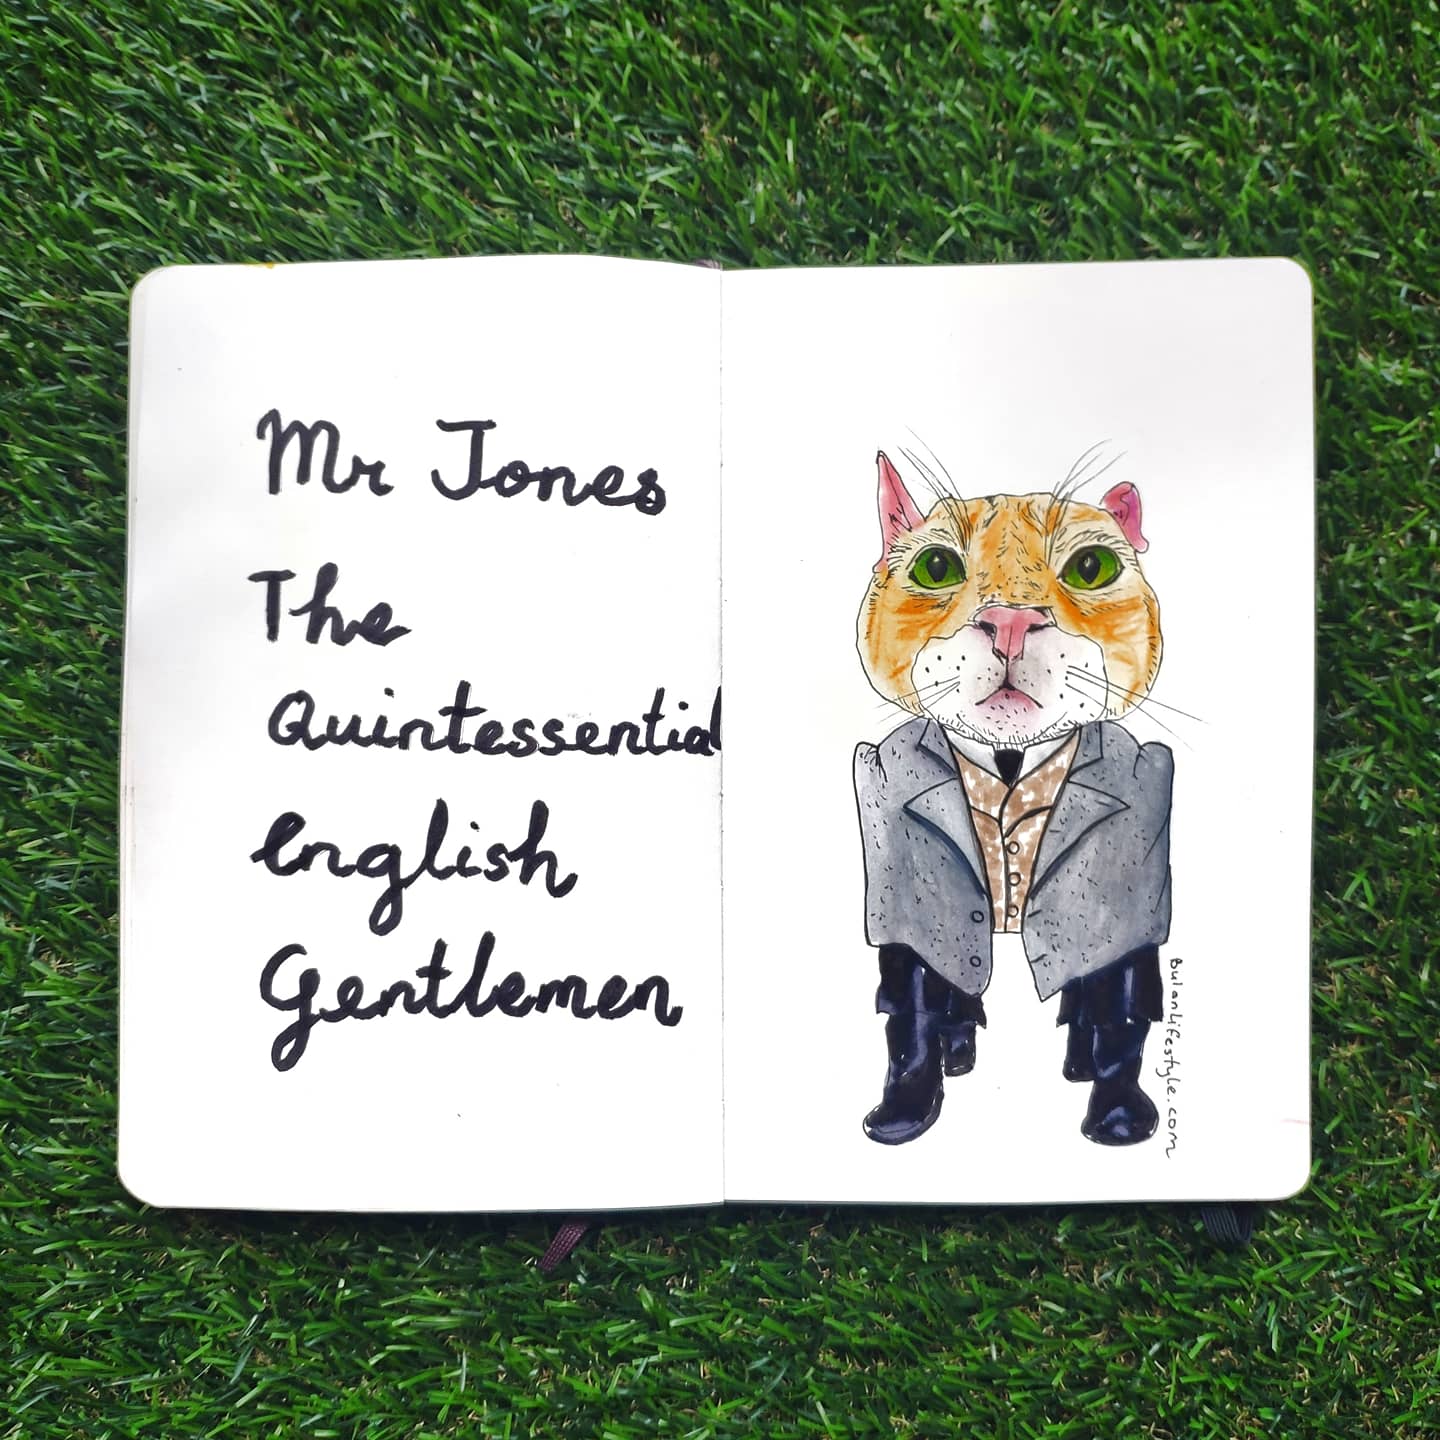 Mr Jones
The
Quintessential
English
Gentlemen
BulanLifestyle.com